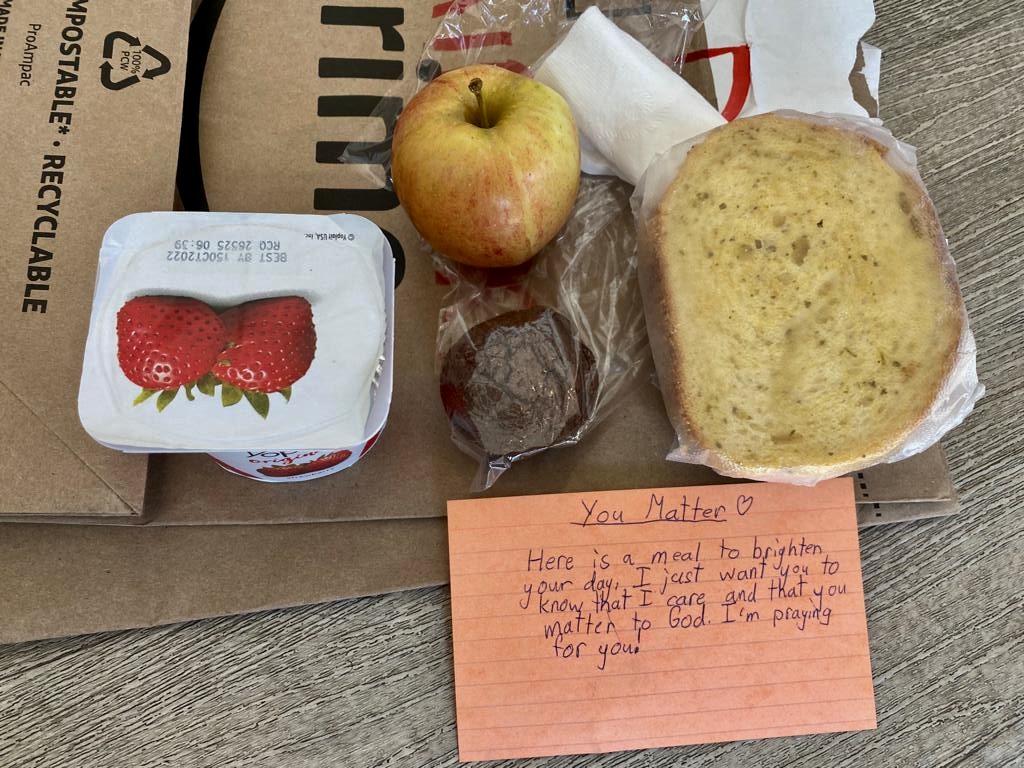 MPOSTABLE* • RECYCLABLE
ProAmpac
100%
PCW
© Yoplait USA, Inc.
BEST BY 15OCT2022
RCO 26525 06:39
You Matter ♡
Here is a meal to brighten
your day. I just want you to
know that I care and that you
matter to God. I'm praying
for you.